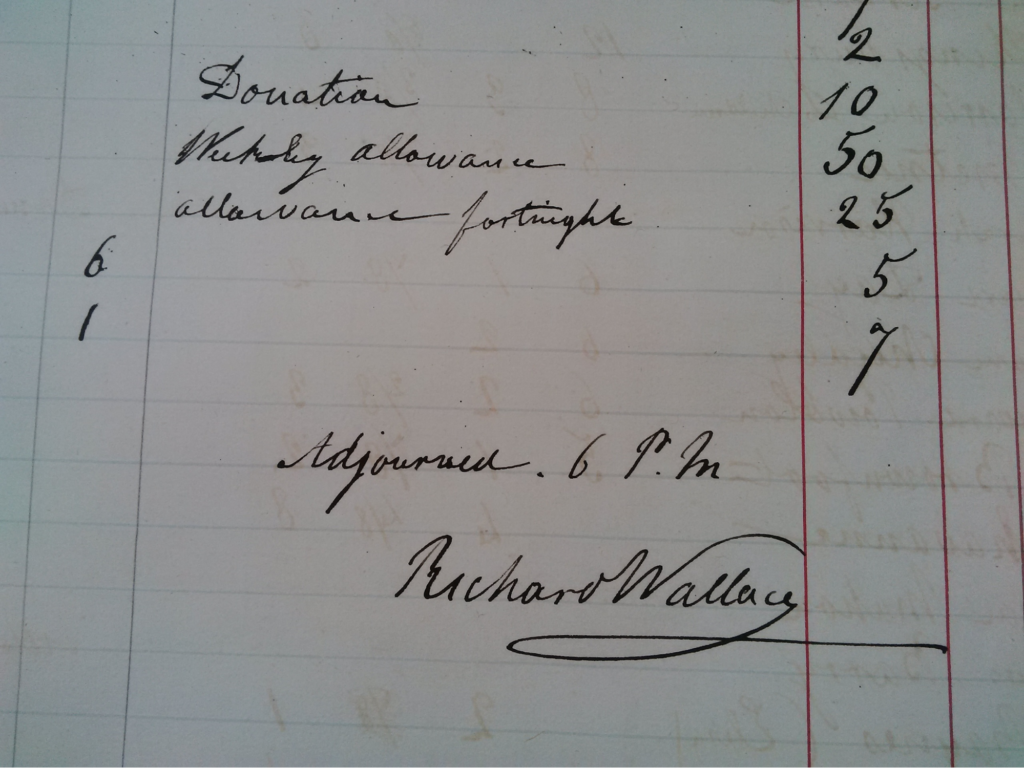 2
Donation 10
Weekly allowance 50
allowance fortnight 25
6 5
1 7
Adjourned. 6 P. M
Richard Wallace